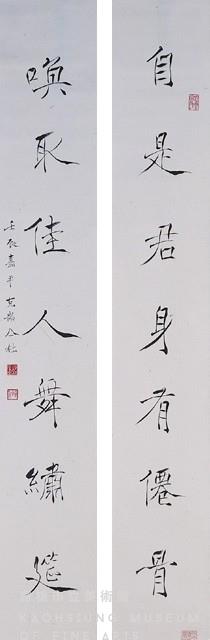 自是君身有僊骨
喚取佳人舞繡筵
壬辰嘉平
KAOHSIUNG MUSEUM
OF FINE ARTS